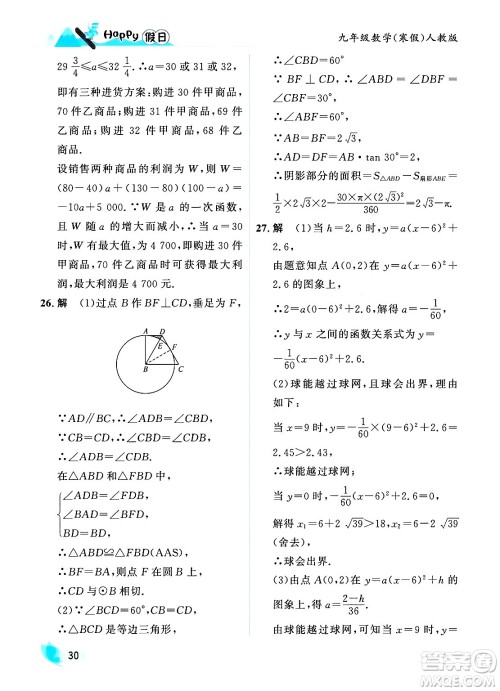 Happy 假日
九年级数学(寒假)人教版
29 3/4≤a≤32 1/4. ∴a=30 或 31 或 32.
即有三种进货方案：购进 30 件甲商品，
70 件乙商品；购进 31 件甲商品，69 件
乙商品；购进 32 件甲商品，68 件乙
商品.
设销售两种商品的利润为 W，则 W=
(80-60)a+(130-80)(100-a)=
-30a+5 000. ∵W 是 a 的一次函数，
W 随 a 的增大而减小，∴当 a=30 时，
W 有最大值，为 4 700，即购进 30 件
甲商品时可使得获得最大利润，
最大利润是 4 700 元.
26. 解 (1)过点 B 作 BF⊥CD，垂足为 F，
A D
E
F
B C
∵AD∥BC，∴∠ADB=∠CBD.
∵CB=CD，∴∠CBD=∠CDB.
∴∠ADB=∠CDB.
在△ABD 和△FBD 中，
∠ADB=∠FDB
∠BAD=∠BFD
BD=BD
∴△ABD≌△FBD(AAS).
∴BF=BA，则点 F 在圆 B 上，
∴CD 与⊙B 相切.
(2)∵∠BCD=60°，CB=CD，
∴△BCD 是等边三角形，
∴∠CBD=60°.
∵BF⊥CD，
∴∠ABD=∠DBF=∠CBF=30°，
∴∠ABF=60°.
∵AB=BF=2√3，
∴AD=DF=AB·tan 30°=2.
∴阴影部分的面积=S△ABD-S扇形ABE=
1/2×2√3×2-30×π×(2√3)²/360=2√3-π.
27. 解 (1)当 h=2.6 时，y=a(x-6)²+
2.6，
由题意知点 A(0，2)在 y=a(x-6)²+
2.6 的图象上，
∴2=a(0-6)²+2.6，解得 a=-1/60，
∴y 与 x 之间的函数关系式为 y=
-1/60(x-6)²+2.6.
(2)球能越过球网，且球会出界. 理由
如下：
当 x=9 时，y=-1/60×(9-6)²+2.6=
2.45>2.43，
∴球能越过球网；
当 y=0 时，-1/60(x-6)²+2.6=0，
解得 x₁=6+2√39>18，x₂=6-2√39
(舍去)，
∴球会出界.
(3)由点 A(0，2)在 y=a(x-6)²+h 的
图象上，得 a=2-h/36.
由球能越过球网，得当 x=9 时，y=
30